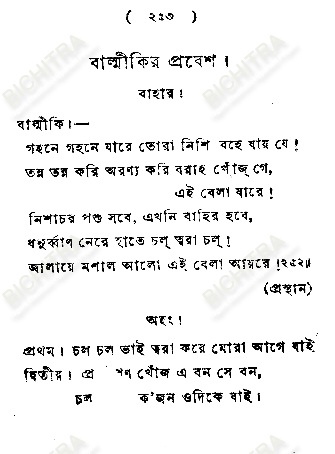 ( ২৫৩ )
বাল্মীকির প্রবেশ ।
বাহার ।
বাল্মীকি ।—
গহনে গহনে যারে তোরা নিশি বহে যায় যে !
তন্ন তন্ন করি অরণ্য করি বরাহ খোঁজ্ গে,
এই বেলা যারে !
নিশাচর পশু সবে, এখনি বাহির হবে,
ধনুর্ব্বাণ নেরে হাতে চল্ ত্বরা চল্ !
জালায়ে মশাল আলো এই বেলা আয়রে ।২৫২॥
(প্রস্থান)
অহং ।
প্রথম । চল চল ভাই ত্বরা করে মোরা আগে যাই
দ্বিতীয় । খোঁজ এ বন সে বন,
চল ক'জন ওদিকে যাই ।
BICHITRA